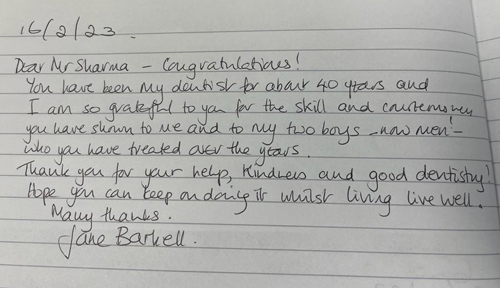 16/2/23.
Dear Mr Sharma - Congratulations!
You have been my dentist for about 40 years and
I am so grateful to you for the skill and
you have shown to me and to my two boys - now men! -
who you have treated over the years.
Thank you for your help, kindness and good dentistry!
Hope you can keep on doing it whilst living live well.
Many thanks.
Jane Barkell.